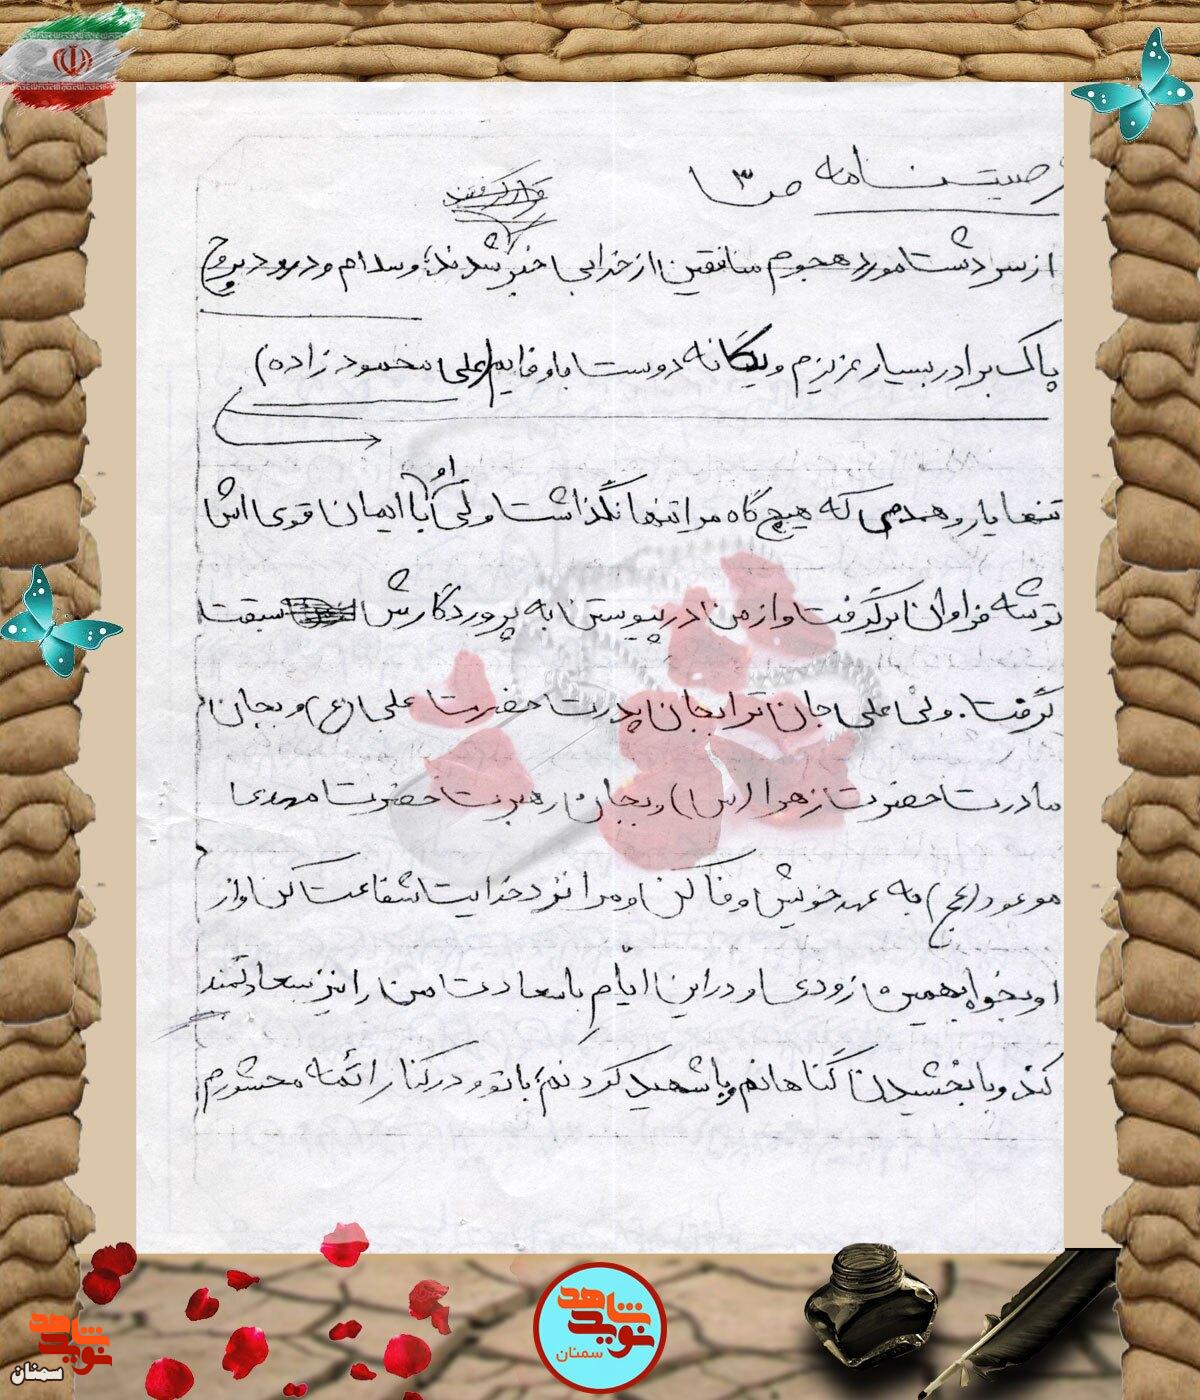 وصیت نامه ص ۳
قرار گرفتند
از سر دشت مورد هجوم منافقین از خدا بی خبر شدند؛ و سلام و درود بروح
پاک برادر بسیار عزیزم و یگانه دوست با وفایم (علی محمود زاده)
تنها یار و همدمی که هیچ گاه مرا تنها نگذاشت ولی او با ایمان قوی اش
توشه فراوان برگرفت و از من در پیوستن به پروردگارش سبقت
گرفت. ولی علی جان ترا بجان پدرت حضرت علی (ع) و بجان
مادرت حضرت زهرا (س) و بجان رهبرت حضرت مهدی
موعود (عج) به عهد خویش وفا کن و مرا نزد خدایت شفاعت کن و از
او بخواه بهمین زودی و در این ایام با سعادت من را نیز سعادتمند
کند و با بخشیدن گناهانم و با شهید کردنم؛ با تو و در کنار ائمه محشورم
نوید شاهد
سمنان
نوید شاهد
سمنان